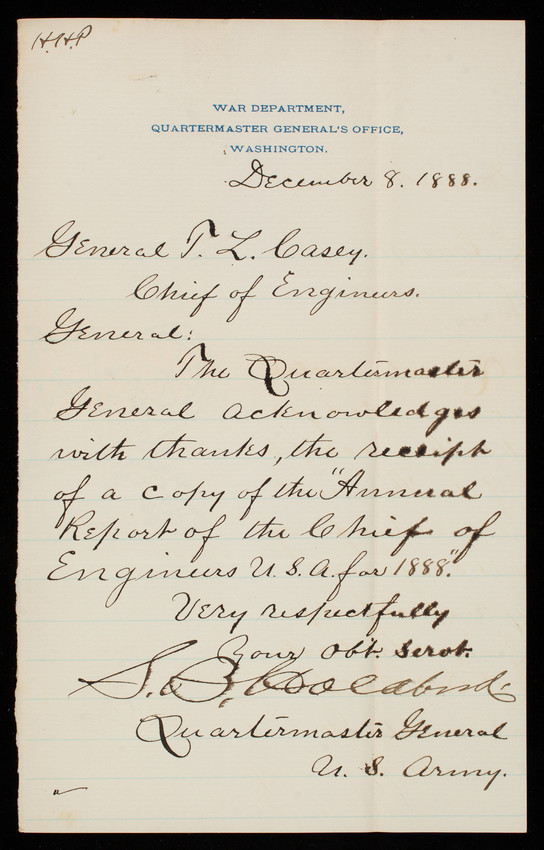 H.H.P
WAR DEPARTMENT,
QUARTERMASTER GENERAL'S OFFICE,
WASHINGTON.
December 8. 1888.
General T. L. Casey.
Chief of Engineers.
General:
The Quartermaster
General acknowledges
with thanks, the receipt
of a copy of the "Annual
Report of the Chief of
Engineers U. S. A. for 1888".
Very respectfully
Your Obt. Servt.
S. B. Holabird
Quartermaster General
U. S. Army.